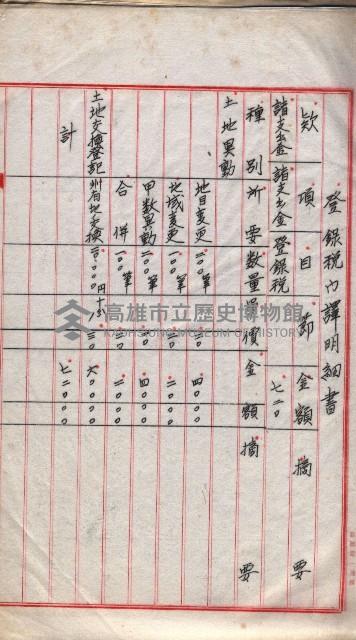 登録税內譯明細書
款 項 目 節 金額 摘要
諸支出金 諸支出金 登録税 七二〇
種別 所要數量 單價 金額 摘要
土地異動
地目変更 二〇〇筆 二〇 四〇〇〇
地域変更 一〇〇筆 二〇 二〇〇〇
甲数異動 二〇〇筆 二〇 四〇〇〇
合併 一〇〇筆 二〇 二〇〇〇
土地交換登記 州有地交換 六〇〇〇
計 七二〇〇〇
高雄市立歷史博物館
KAOHSIUNG MUSEUM OF HISTORY